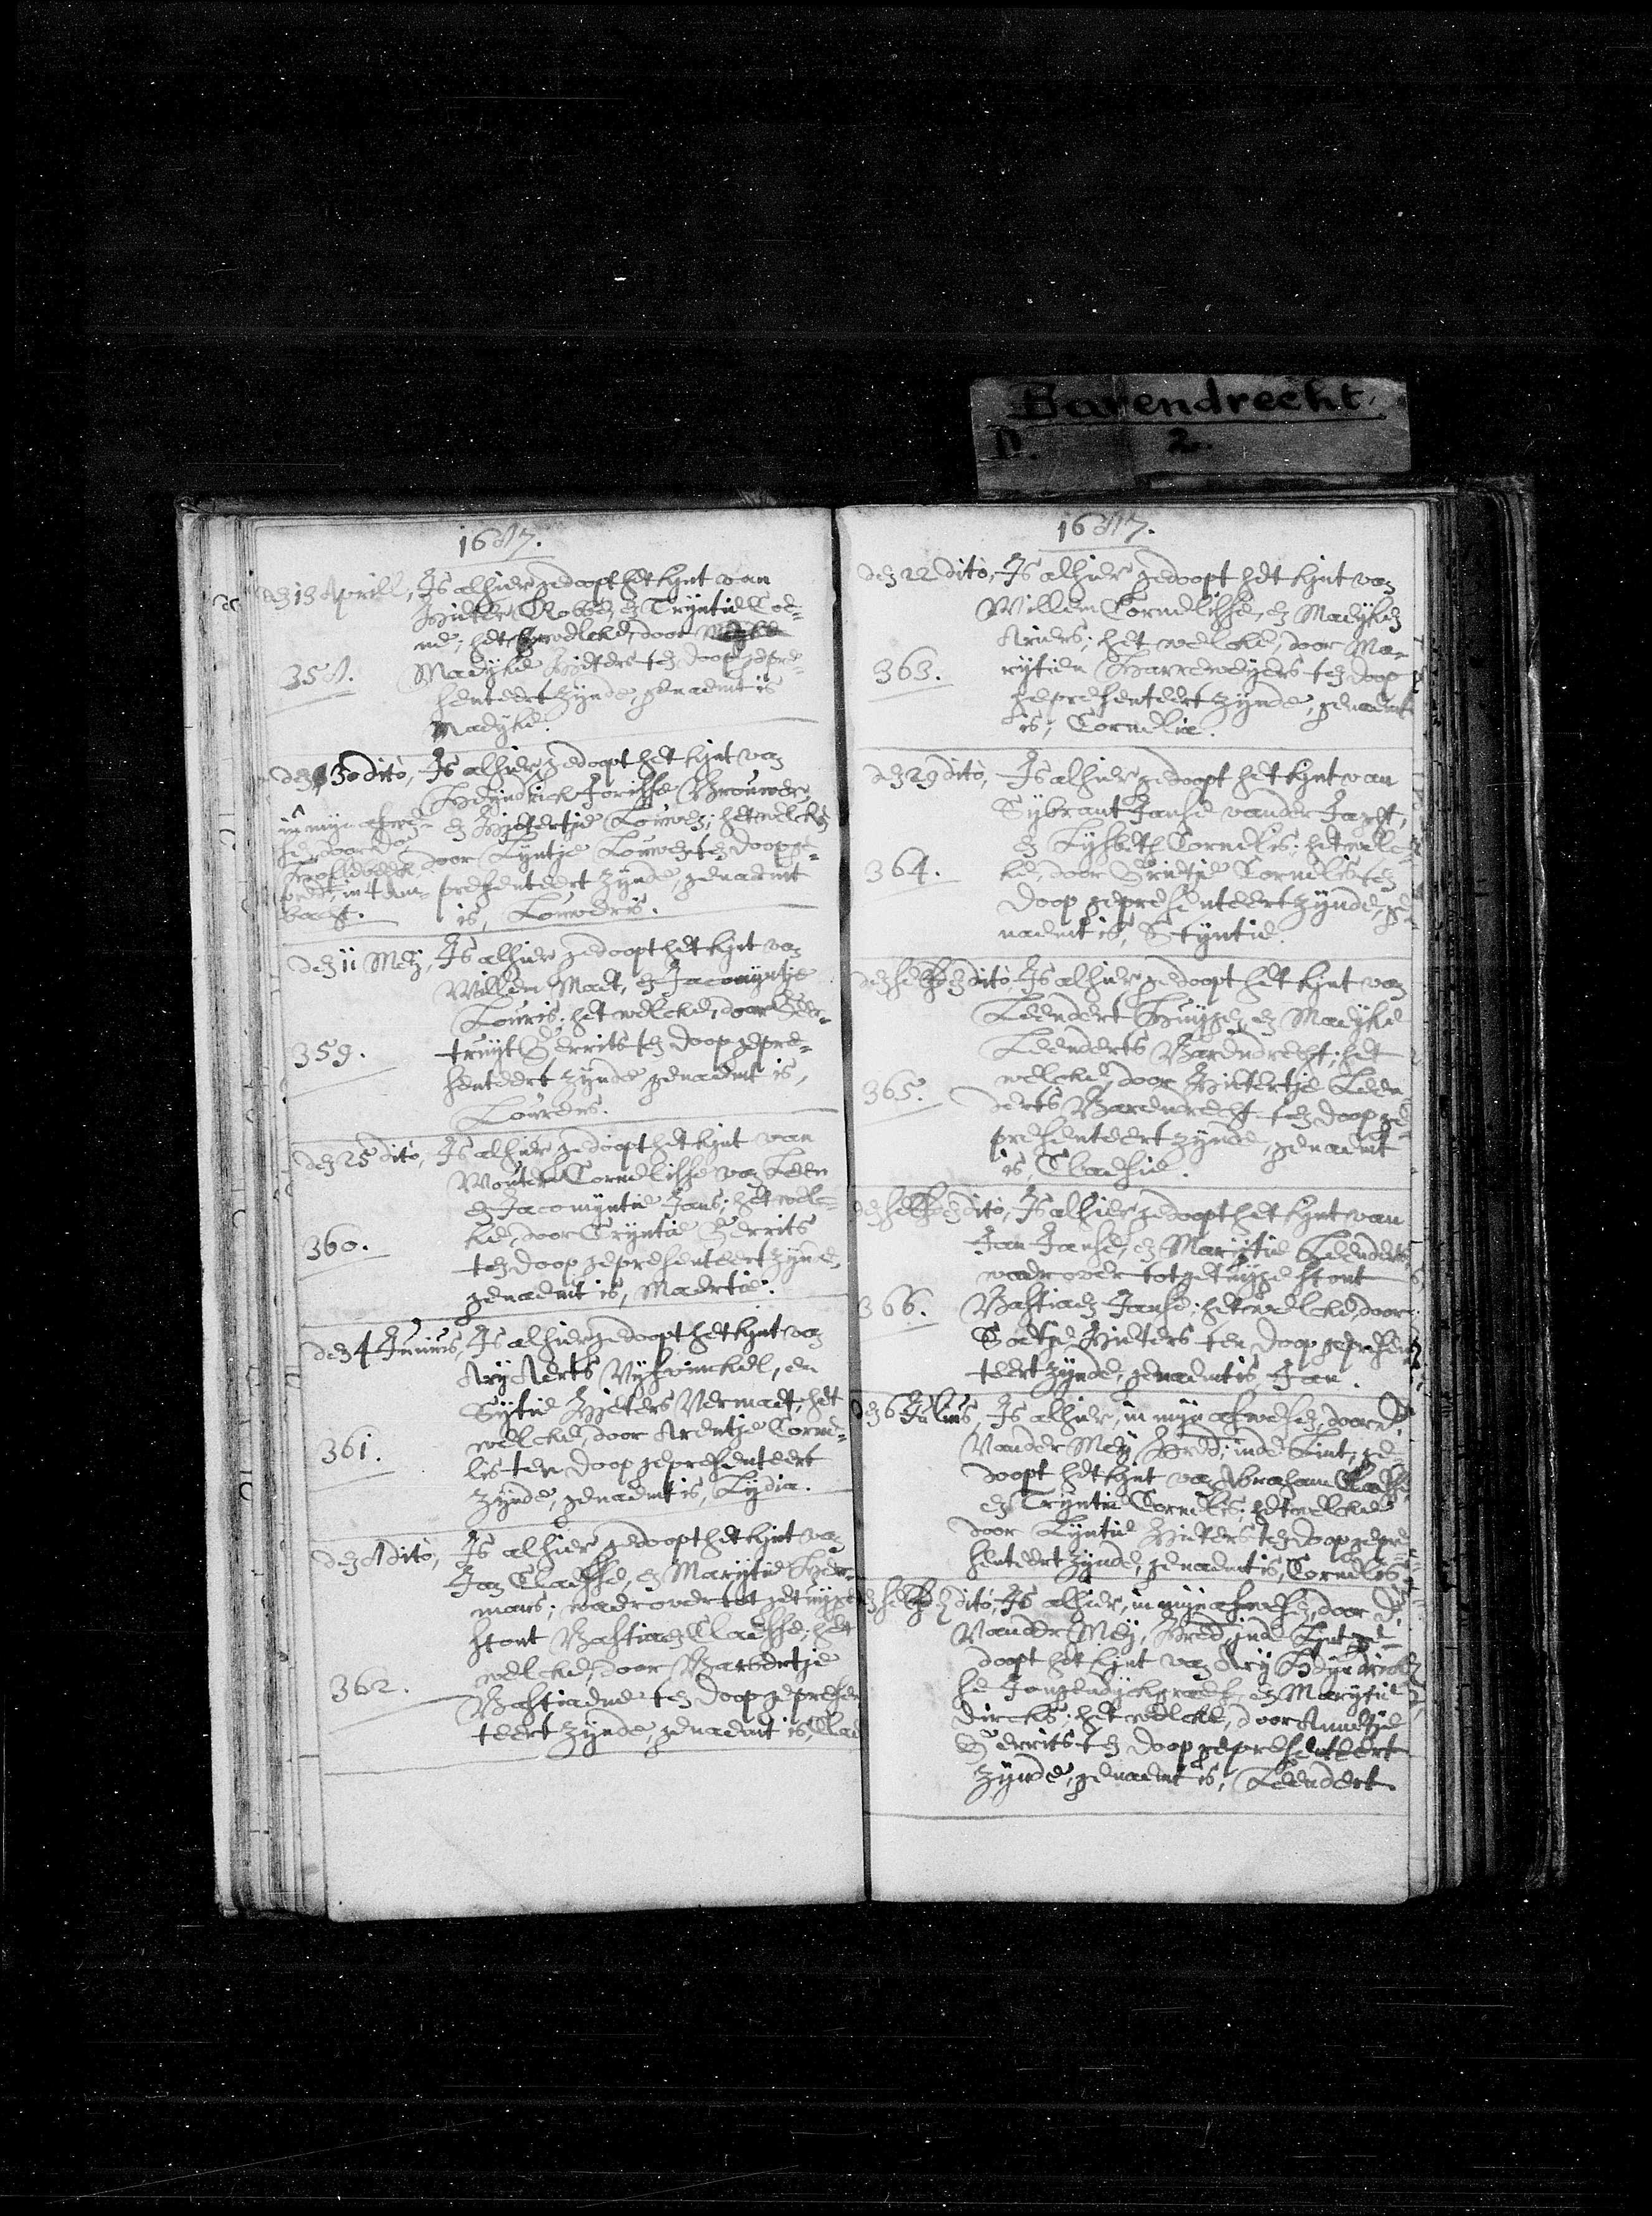 Barendrecht.
D. 2.
1687.
den 13 Aprill, Is alhier gedoopt het kynt van
Pieter Robbe, en Tryntie Coe-
ne; het welcke, door
358. Maeyke Pieters ten doop gepre-
senteert zynde, genaemt is
Maeyke.
den 30 dito, Is alhier gedoopt het kynt van
Heyndrick Jorisse Brouwer,
in myn afwe- en Pietertje Louwen; het welcke
sen door do
door Lyntje Louwen ten doop ge-
predt, in t Am- presenteert zynde, genaemt
bacht. is, Louweris.
den 11 Mey, Is alhier gedoopt het kynt van
Willem Maet, en Jacomyntje
Louris; het welcke, door Geer-
359. truyt Gerrits ten doop gepre-
senteert zynde, genaemt is,
Lourens.
den 25 dito, Is alhier gedoopt het kynt van
Wouter Cornelisse van Leen
en Jacomyntie Jans; het wel-
360. ke, door Tryntie Gerrits
ten doop gepresenteert zynde,
genaemt is, Maertie.
den 4 Junius, Is alhier gedoopt het kynt van
Ary Aerts Vyfvinckel, en
Sytie Pieters Vermaet; het
361. welcke, door Arentje Corne-
lis ten doop gepresenteert
zynde, genaemt is, Lydia.
den 8 dito, Is alhier gedoopt het kynt van
Jan Claesse, en Marytie Her-
mans; waer over tot getuyge
stont Bastiaen Claesse; het
362. welcke, door Barbertje
Bastiaens ten doop gepresen
teert zynde, genaemt is, Clae
1687.
den 22 dito, Is alhier gedoopt het kynt van
Willem Cornelisse, en Maeyken
Ariens; het welcke, door Ma-
363. rytien Harreweyers ten doop
gepresenteert zynde, genaemt
is, Cornelia.
den 29 dito, Is alhier gedoopt het kynt van
Sybrant Janse vander Jacht,
en Lysbeth Cornelis; het wel-
364. ke, door Grietje Cornelis ten
doop gepresenteert zynde, ge-
naemt is, Styntie.
den selfden dito, Is alhier gedoopt het kynt van
Leendert Huyge, en Maeyke
Leenderts Barendrecht; het
365. welcke, door Pietertje Leen
derts Barendrecht ten doop ge-
presenteert zynde, genaemt
is, Claesie.
den selfden dito, Is alhier gedoopt het kynt van
Jan Janse, en Marytie Leenderts
waer over tot getuyge stont
366. Bastiaen Janse; het welcke, door
Soetje Pieters ten doop gepresen
teert zynde, genaemt is, Jan.
den 6 Julius, Is alhier, in myn afwesen, door D.
Vander Mey, Pred: inde Lint, ge
doopt het kynt van Abraham Claesse,
en Tryntie Cornelis; het welcke
door Lyntie Pieters ten doop gepre-
senteert zynde, genaemt is, Cornelis.
den selfden dito, Is alhier, in myn afwesen, door D.
Vander Mey, Pred: inde Lynt ge-
doopt het kynt van Ary Heyndrick
se Jongendyckgraef, en Marytie
Dircks; het welcke, door Annetje
Gerrits ten doop gepresenteert
zynde, genaemt is, Leendert.